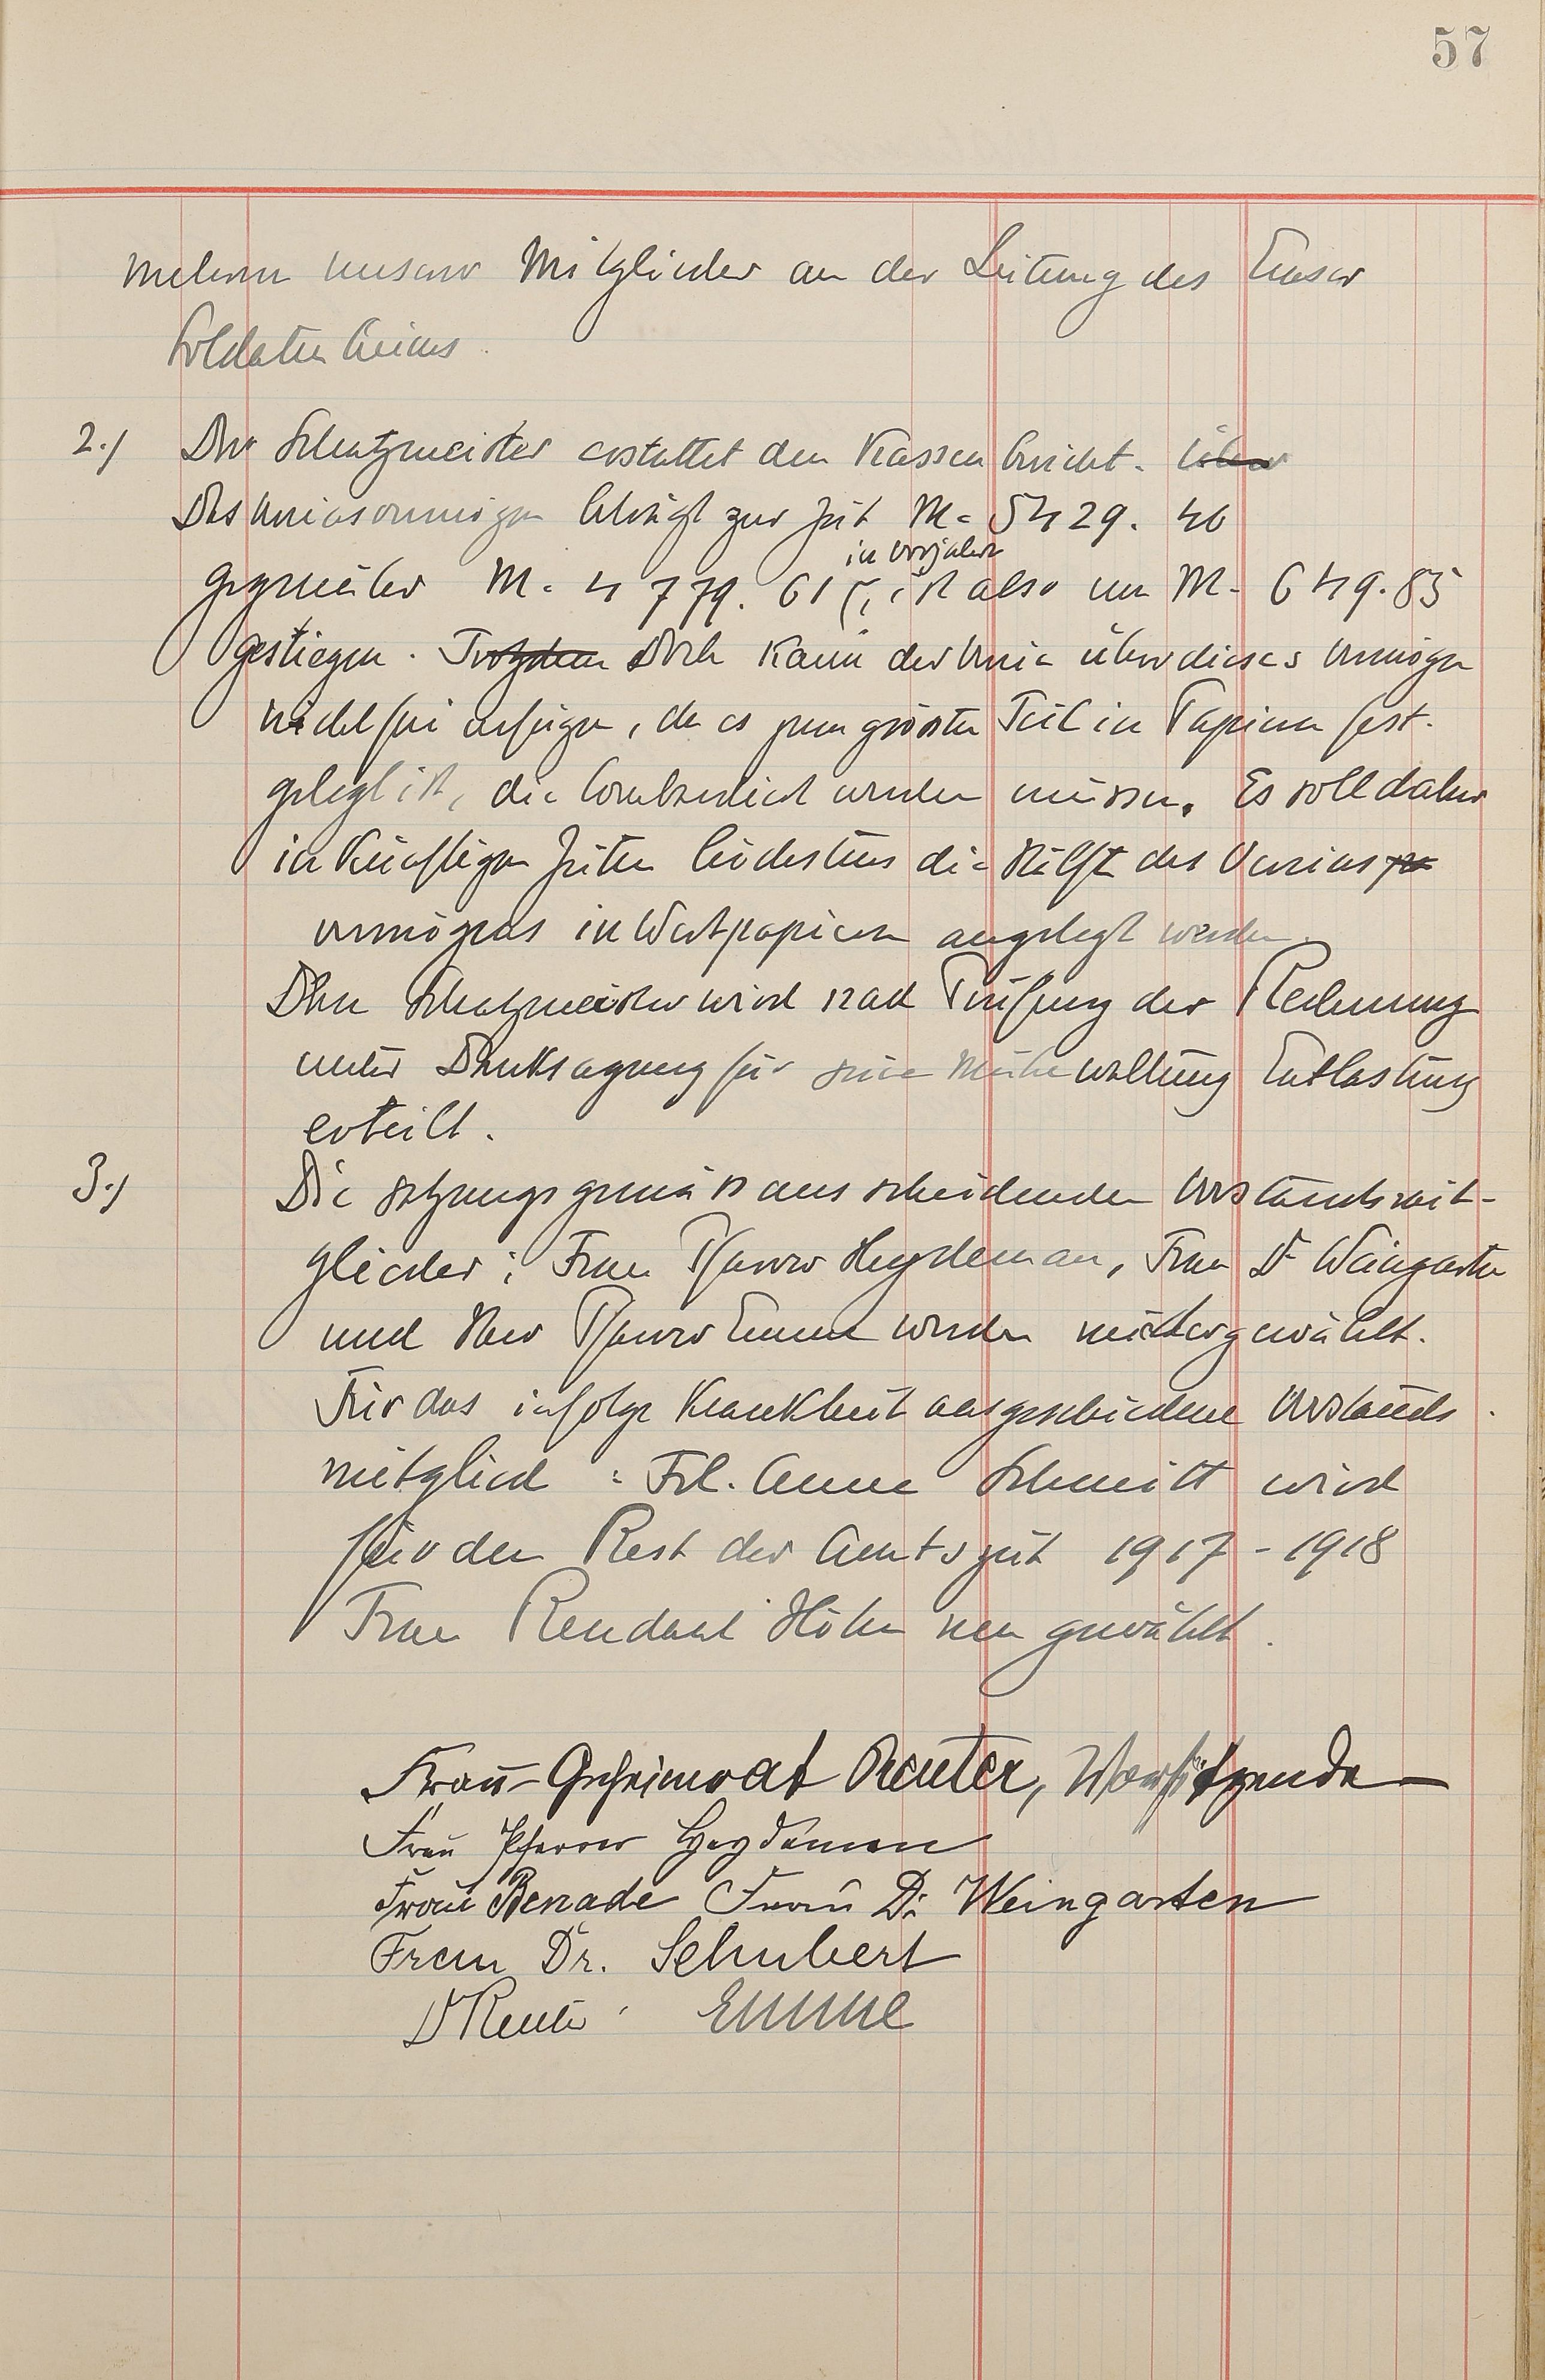 57
mehrerer unserer Mitglieder an der Leitung des Emser
Soldatenheims.
2.) Der Schatzmeister erstattet den Kassenbericht. Über
Das Vereinsvermögen beträgt zur Zeit M. 5429. 46
im Vorjahre
gegenüber M. 4 779. 61 , ist also um M. 649.85
gestiegen. Trotzdem Doch kann der Verein über dieses Vermögen
nicht frei verfügen, da es zum grössten Teil in Papieren fest-
gelegt ist, die werden müssen. Es soll daher
in künftigen Zeiten höchstens die Hälfte des Vereins
vermögens in Wertpapieren angelegt werden.
Dem Schatzmeister wird nach Prüfung der Rechnung
unter Danksagung für seine Mühewaltung Entlastung
erteilt.
3.) Die satzungsgemäss ausscheidenden Vorstandsmit-
glieder: Frau Pfarrer Heydeman, Frau Dr Weingarten
und Herr Pfarrer Emme werden wiedergewählt.
Für das infolge Krankheit ausgeschiedene Vorstands
mitglied: Frl. Anna Schmitt wird
für den Rest der Amtszeit 1917 - 1918
Frau Rendant Höhn neu gewählt.
Frau Geheimrat Reuter, Vorsitzende
Frau Pfarrer Heydemann
Frau Benade Frau Dr Weingarten
Frau Dr. Schubert
Dr Reuter Emme